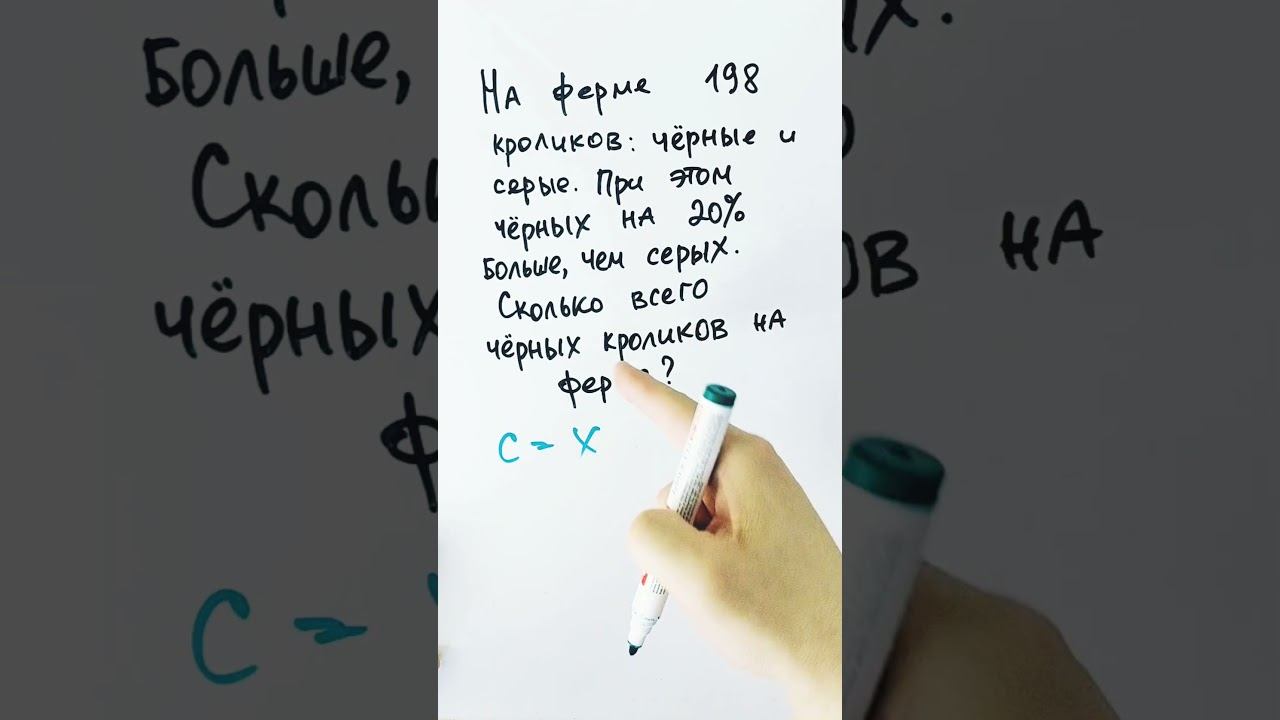 На ферме 198
кроликов: чёрные и
серые. При этом
чёрных на 20%
больше, чем серых.
Сколько всего
чёрных кроликов на
фер ?
С = X